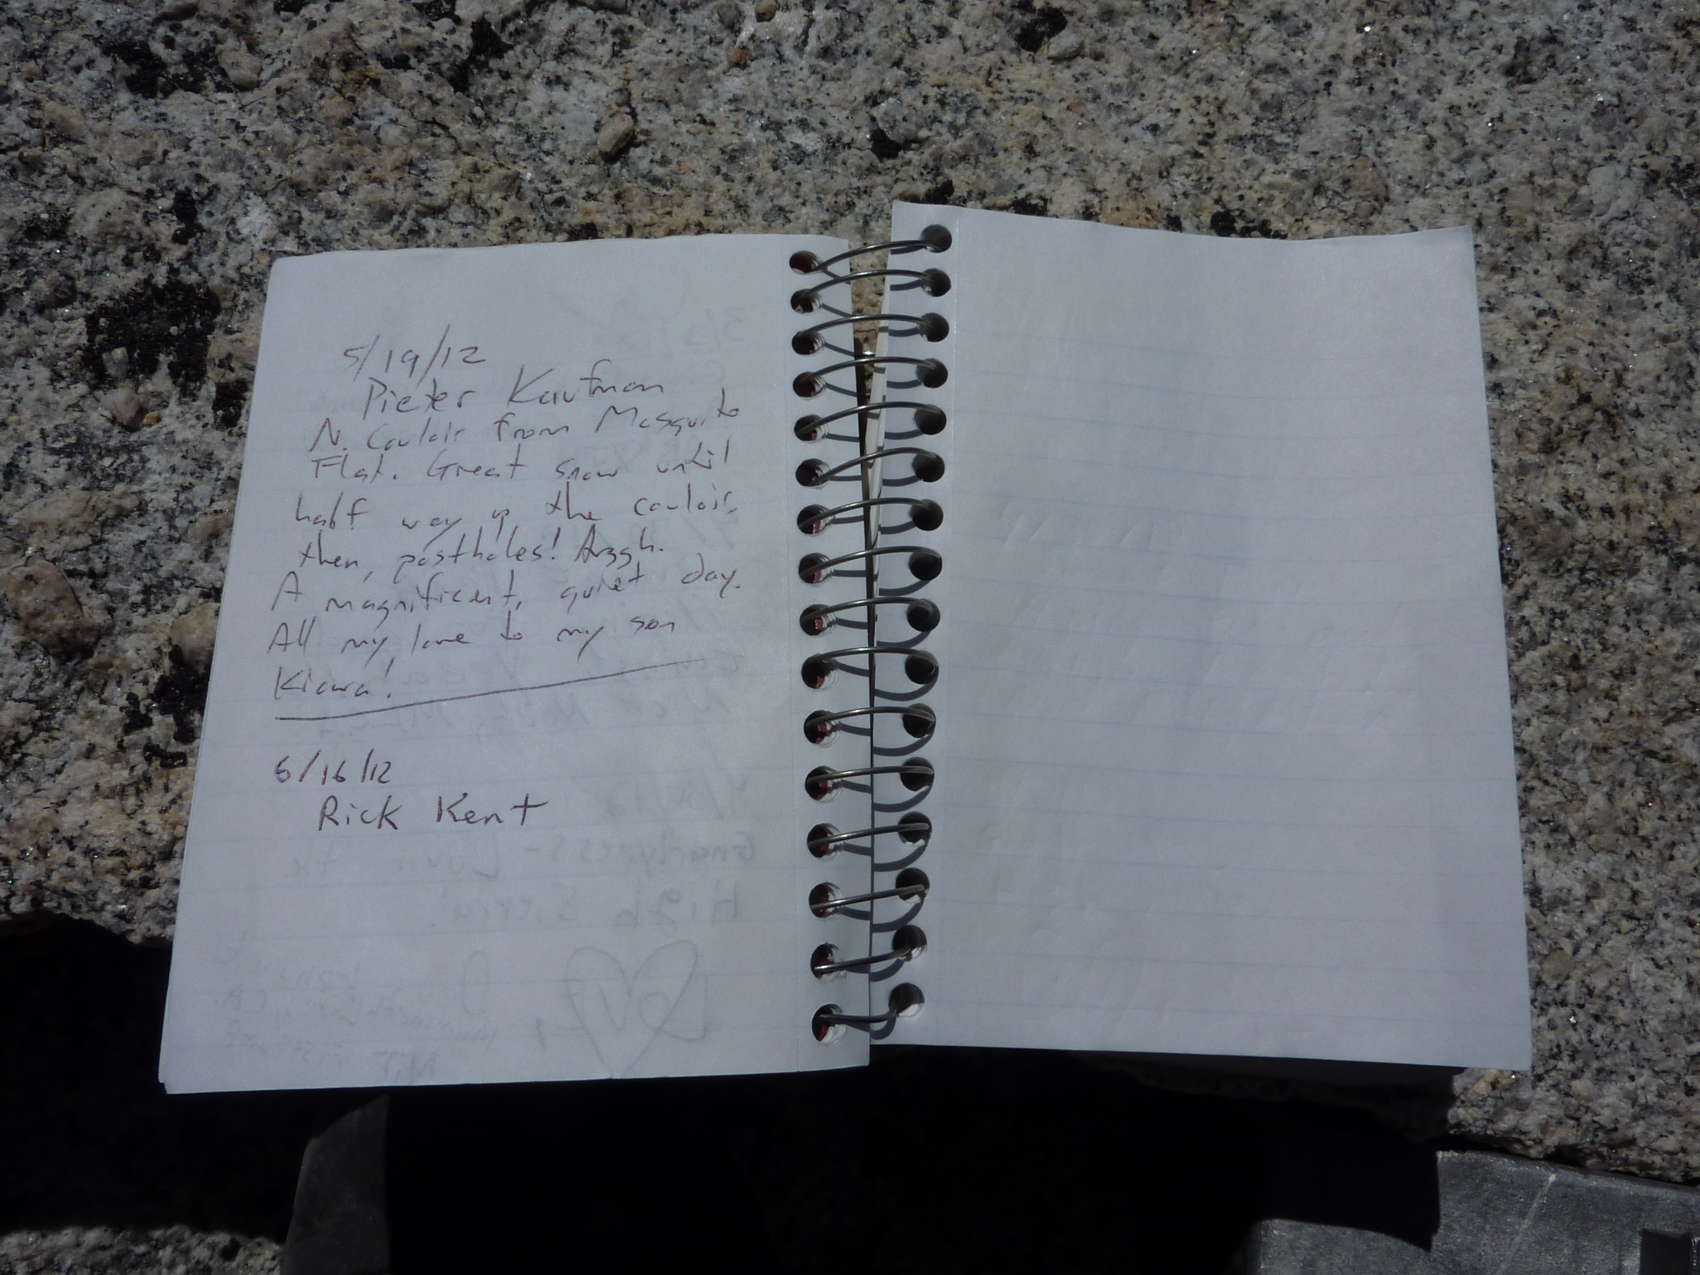 5/19/12
Pieter Kaufman
N. Couloir from Mosquito
Flat. Great snow until
half way up the couloir,
then, postholes! Arggh.
A magnificent, quiet day.
All my love to my son
Kiowa!
6/16/12
Rick Kent